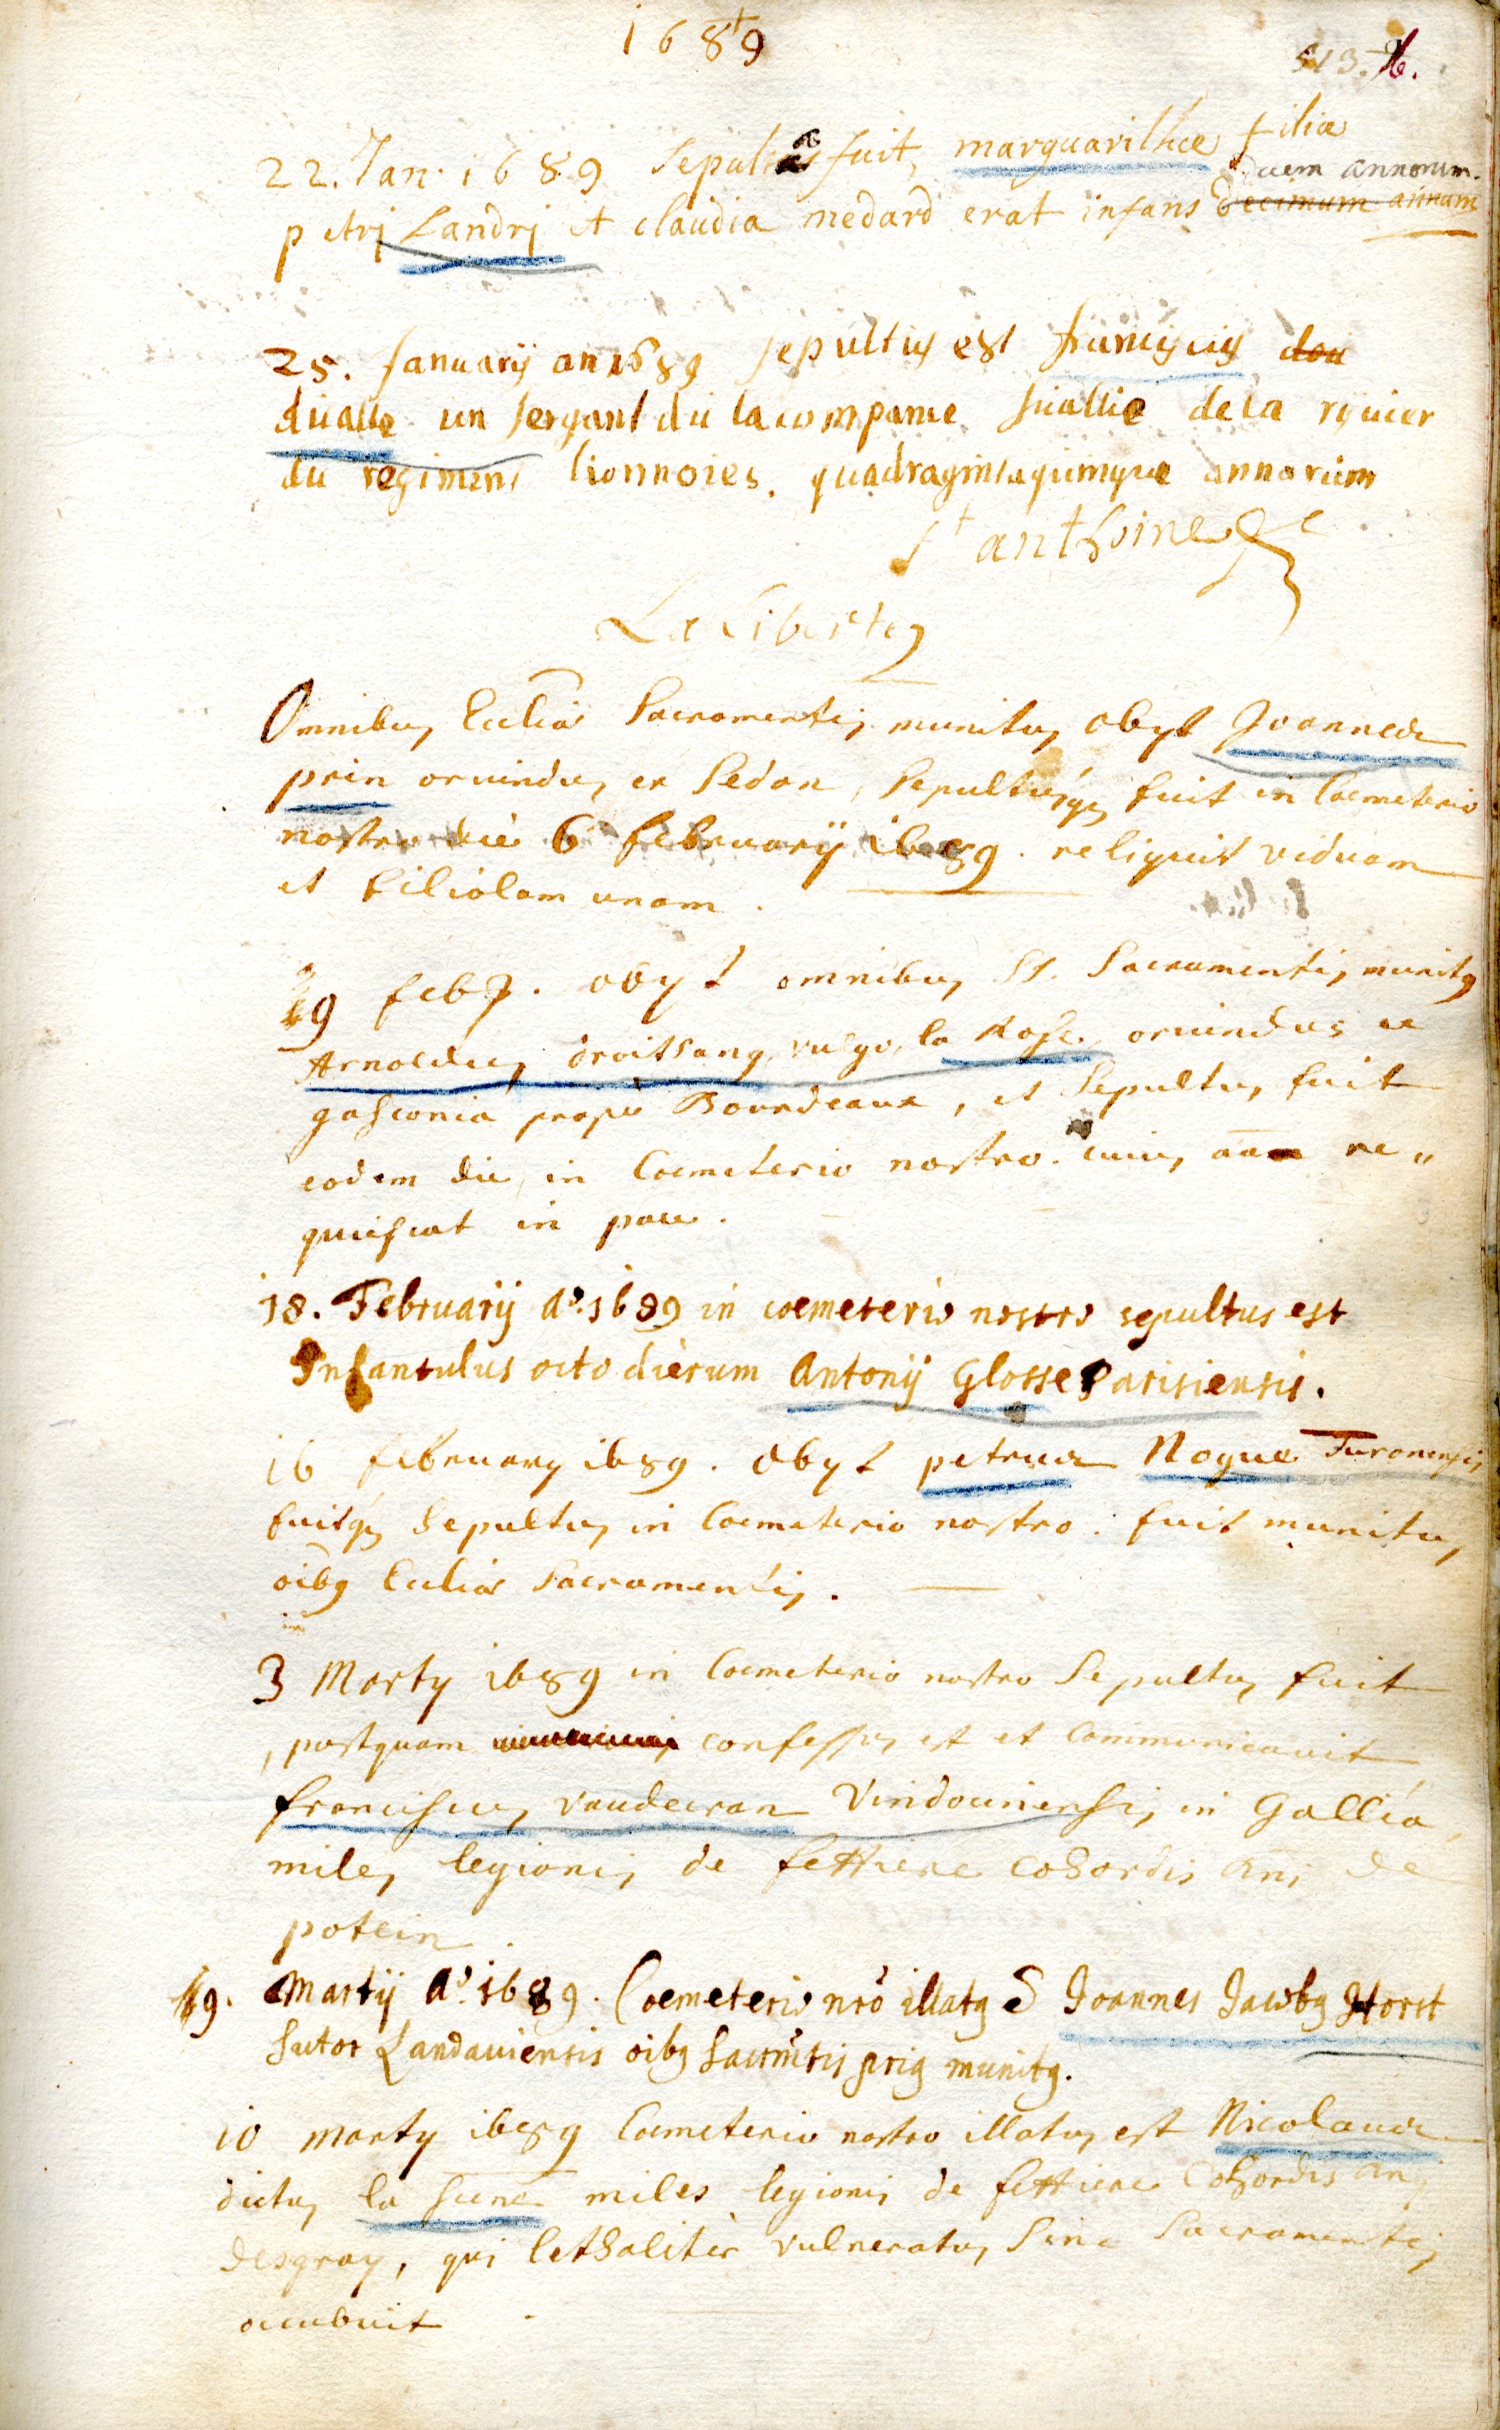 1689
513.
22. Jan. 1689 Sepulta fuit, marguarithæ filia
decem annorum.
petrj Landrj et claudia medard erat infans decimum annum
25. Januarij an 1689 sepultus est franciscus dou
dualle un sergant du la compame suallie de la rquier
du regiment lionnoies. quadragintaquinque annorum
st anthoine
La Liberte
Omnibus Eccliæ Sacramentis munitus obijt Joannes
prin oriundus ex Sedan, Sepultusque fuit in Coemeterio
nostro die 6 februarij 1689. reliquit viduam
et filiolam unam.
9 feb. obijt omnibus SS. Sacramentis munitus
Arnoldus droitsang, vulgo, la Rose, oriundus ex
gasconia prope Bourdeaux, et Sepultus fuit
eodem die, in Coemeterio nostro. cuius aa re"
quiescat in pace.
18. Februarij Ao. 1689 in coemeterio nostro sepultus est
Infantulus octo dierum Antonij Glosse Parisiensis.
16 february 1689. obyt petrus Nogue Turonensis
fuitque Sepultus in Coemeterio nostro. fuit munitus
oibus Eccliæ Sacramentis.
3 Marty 1689 in Coemeterio nostro Sepultus fuit
, postquam confessus est et Communicavit
franciscus vaudecran Vindocinensis in Gallia,
miles legionis de fettiere cohordis dni de
potein.
9. Martij Ao. 1689. Coemeterio nro illatus e Joannes Jacobus Horst
Sutor Landaviensis oibus Sacrmtis prius munitus.
10 marty 1689 Coemeterio nostro illatus est Nicolaus
dictus la scene miles legionis de fettiere Cohordis dni
desgray, qui lethaliter vulneratus Sine Sacramentis
occubuit